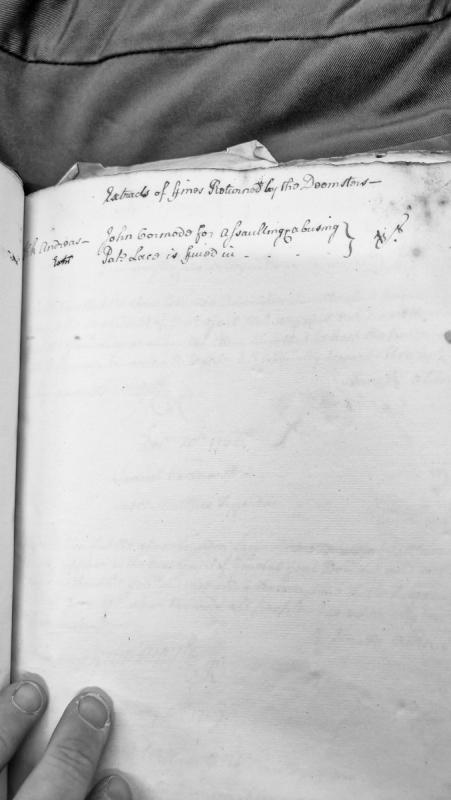 Extracts of fines Returned by the Deemsters—
Kk Andreas— John Cormode for assaulting & abusing
Patk Lace is fined in - . . . .